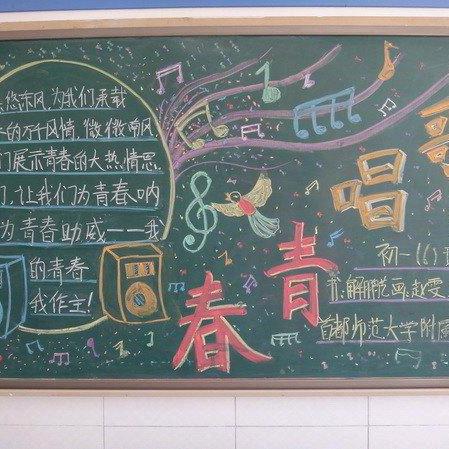 悠悠东风,为我们承载
的万千风情,微微南风
们展示青春的大热情思
们,让我们为青春呐
为青春助威——我
的青春
我作主!
歌
唱
青
春
初一(1)
书:解 画:赵雯
首都师范大学附属